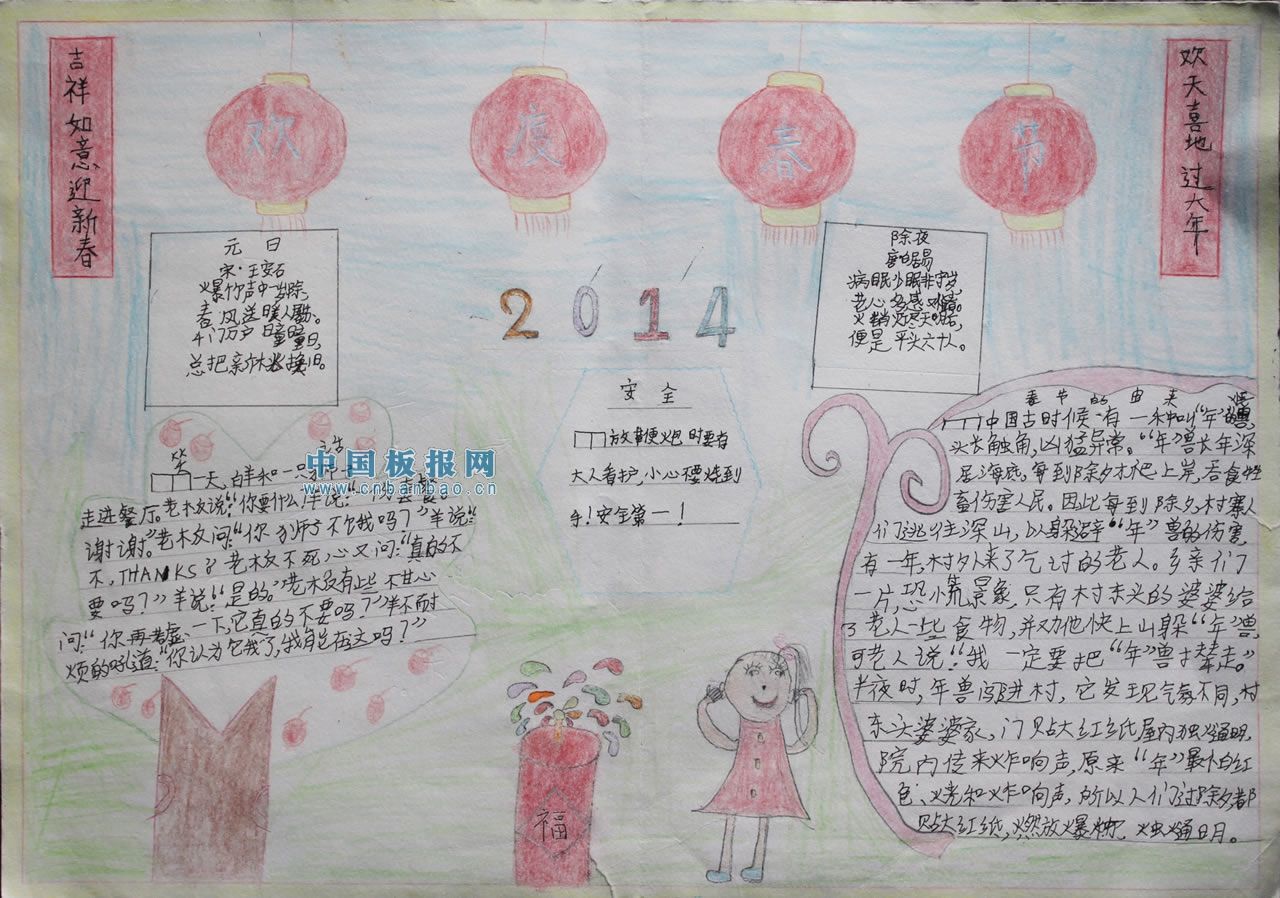 吉祥如意迎新春
欢度春节
欢天喜地过大年
元日
宋·王安石
爆竹声中一岁除,
春风送暖入屠苏。
千门万户曈曈日,
总把新桃换旧。
2014
除夜
唐白居易
病眠少眠非守岁,
老心多感
火销灯尽天明后,
便是平头六十人。
安全
放鞭炮时要有
大人看护,小心不要烧到
手!安全第一!
笑话
一天,羊和一只
走进餐厅。老板说:“你要什么!羊说:“
谢谢。”老板又问:“你
吗?”羊说:“
不,THANKS
老板又不死心又问:“真的不
要吗?”羊说:“是的。”老板有些不甘心
问:“你再
一下,它真的不要吗?”羊不耐
烦的吼道:“你认为它饿了,我能在这吗?”
中国板报网
www.cnbanbao.cn
春节的由来
中国古时候有一种叫“年”的兽,
头长触角,凶猛异常。“年”兽长年深
居海底。每到除夕才爬上岸,吞食牲
畜伤害人民。因此每到除夕,村寨人
们逃往深山,以躲避“年”兽的伤害,
有一年,村外来了乞讨的老人。乡亲们
一片恐慌景象,只有村东头的婆婆给
了老人一些食物,并劝他快上山躲“年”兽,
可老人说:“我一定要把“年”兽撵走。”
半夜时,年兽闯进村,它发现气氛不同,村
东头婆婆家,门贴大红纸,屋内烛通明,
院内传来炸响声,原来“年”最怕红
色、火光和炸响声,所以人们过除夕都
贴大红纸,燃放爆竹,
福